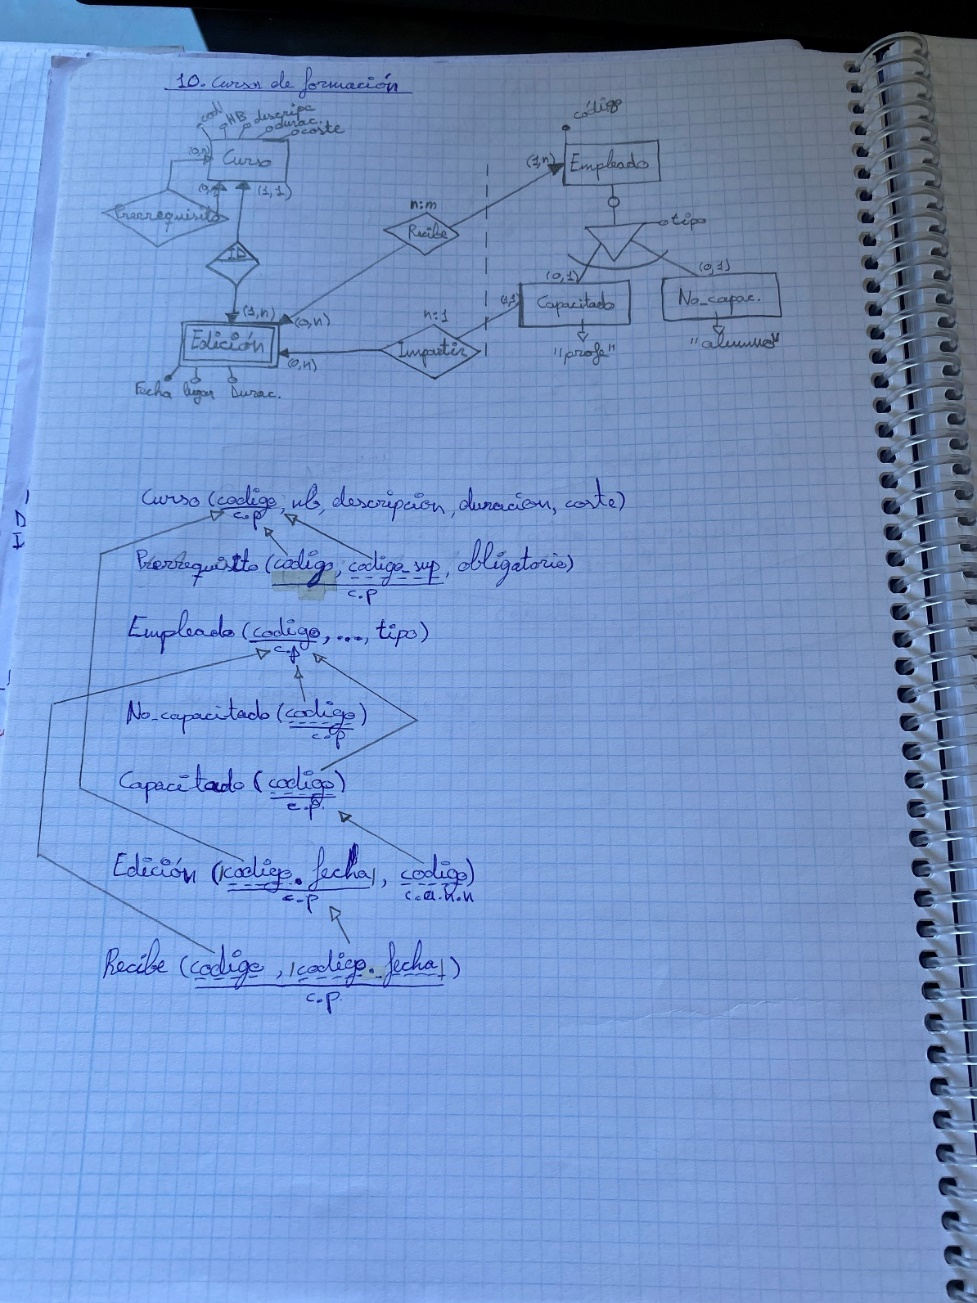 10. Curso de formación
cod NB descripc
durac.
coste
Curso
(0,n)
(0,n) (1,1)
Prerrequisito
ID
(1,n)
Edición
(0,n)
(0,n)
Fecha lugar Durac.
n:m
Recibe
n:1
Impartir
código
(1,n) Empleado
tipo
(0,1) (0,1)
(1,1) Capacitado No_capac.
"profe" "alumno"
Curso (codigo, nb, descripcion, duracion, coste)
c.p
Prerrequisito (codigo, codigo_sup, obligatorio)
c.p
Empleado (codigo, ..., tipo)
c.p
No_capacitado (codigo)
c.p
Capacitado (codigo)
c.p.
Edición (codigo. fecha, codigo)
c.p c.a.n.n
Recibe (codigo, codigo. fecha)
c.p.